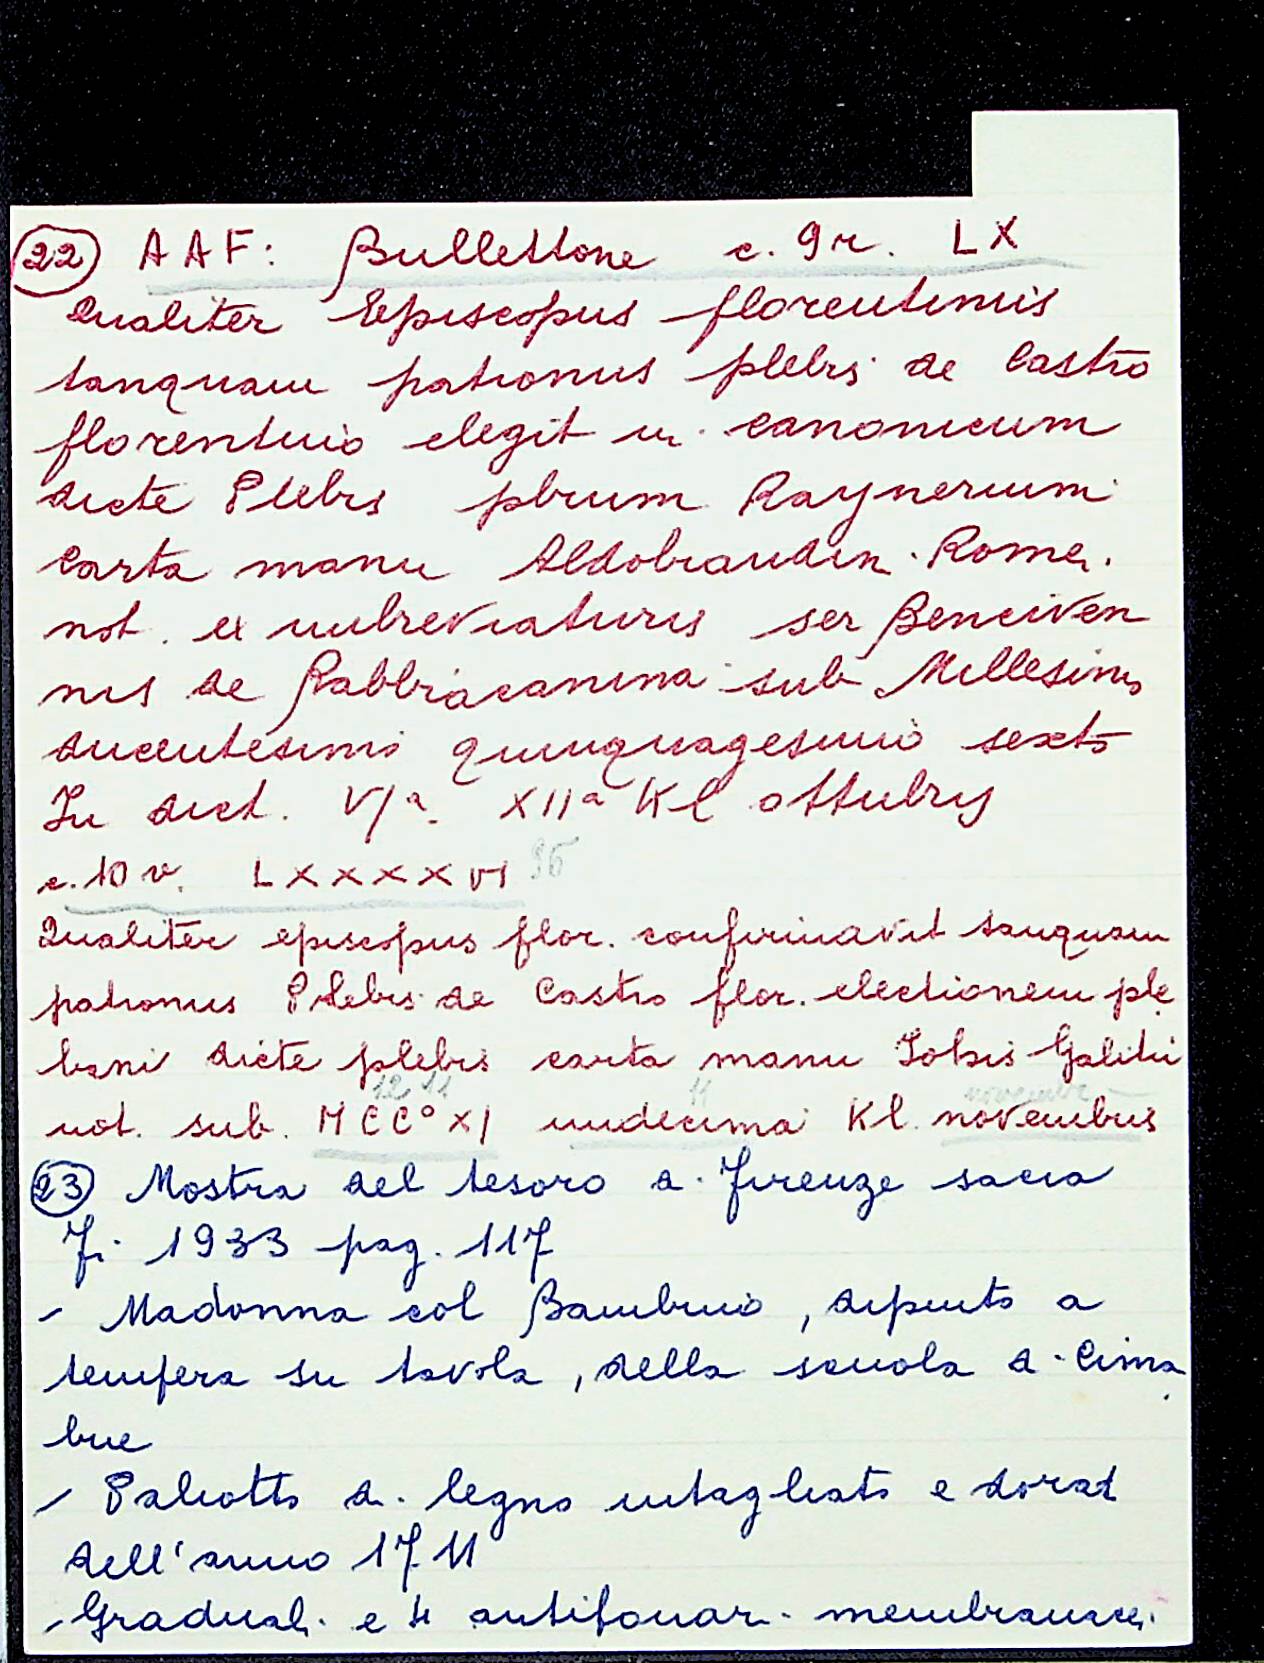 22 AAF: Bullettone c. 9r. LX
Qualiter Episcopus florentinus
tanquam patronus plebis de Castro
florentino elegit in canonicum
dicte Plebis pbrum Raynerium
Carta manu Aldobrandin. Rome.
not. ex imbreviaturis ser Benciven
nis de Rabbiacanina sub Millesimo
ducentesimo quinquagesimo sexto
In dict. VIª. XIIª Kl ottubris
c. 10 v. LXXXXVI 96
Qualiter episcopus flor. confirmavit tanquam
patronus Plebis de Castro flor. electionem ple
bani dicte plebis carta manu Johis Galitii
12 11 11 novembr
not. sub. MCC°XI undecima Kl. novembris
23 Mostra del tesoro di Firenze sacra
Fi 1933 pag. 117
- Madonna col Bambino, dipinto a
tempera su tavola, della scuola di Cima
bue
- Paliotto di legno intagliato e dorat
dell'anno 1711
- Graduali e 4 antifonari membranacei